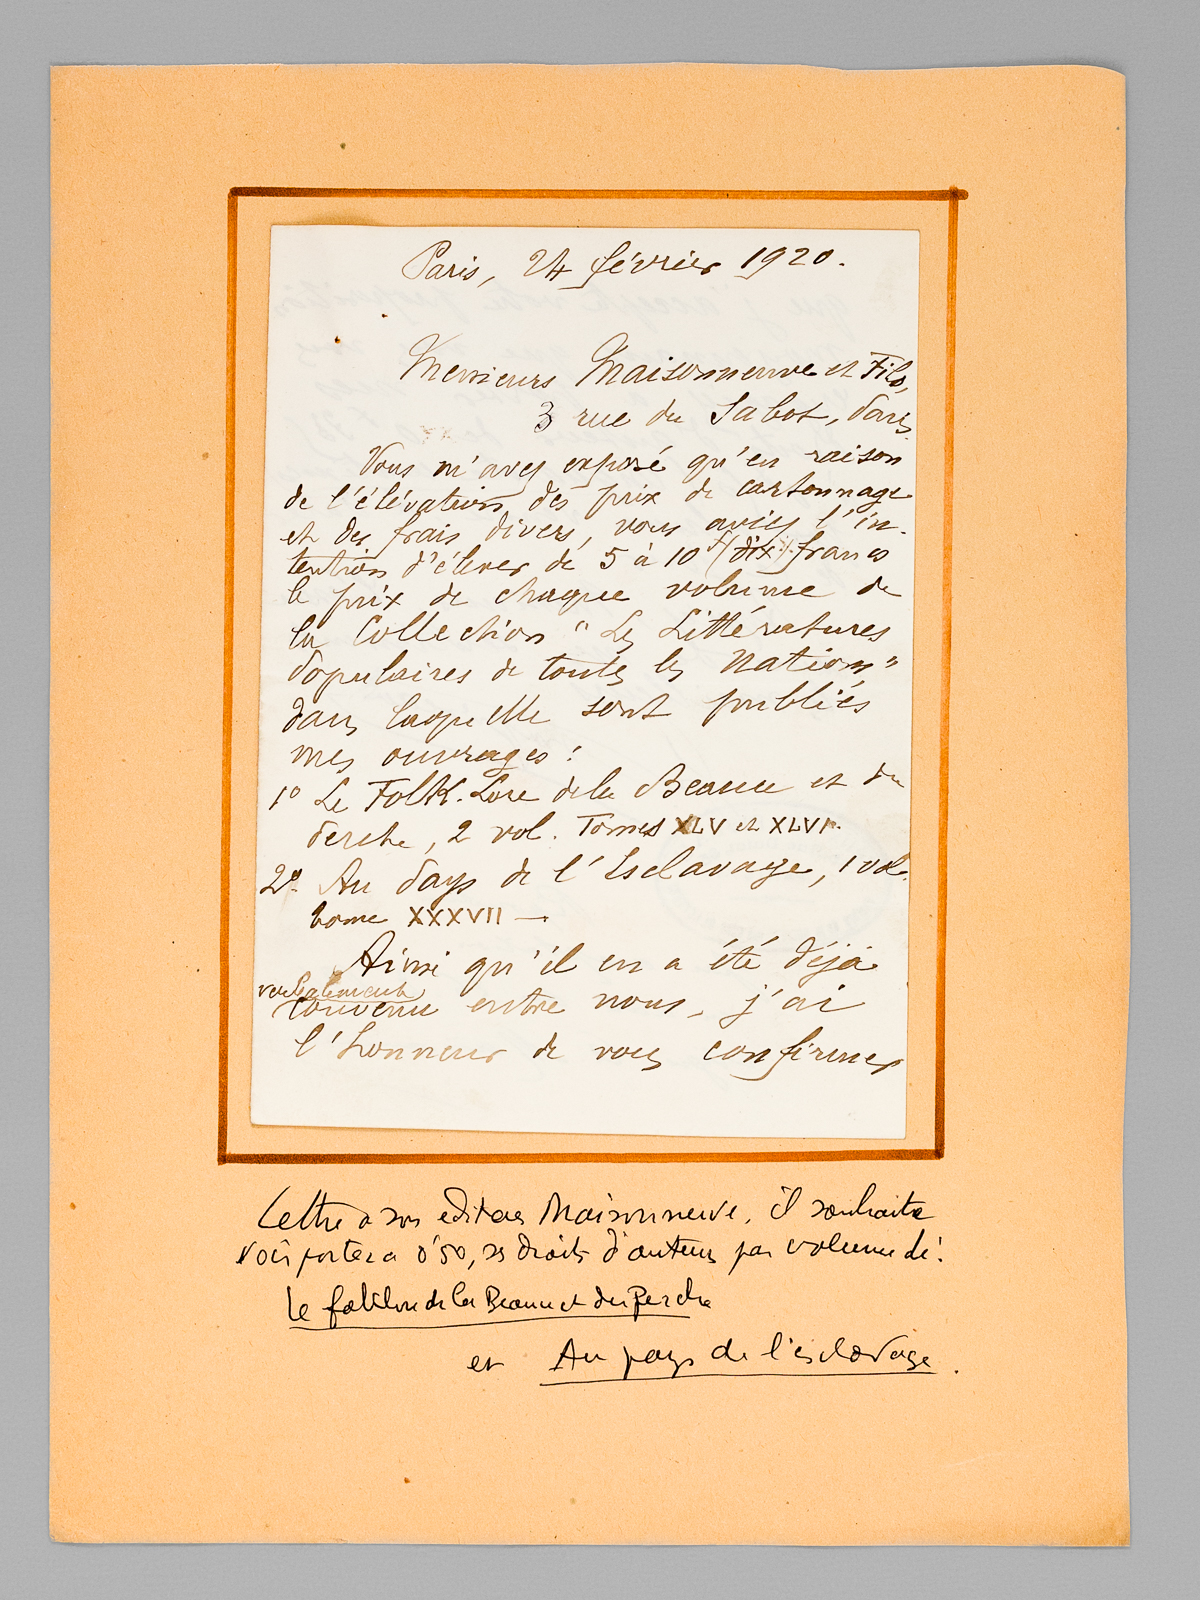 Paris, 24 février 1920.
Messieurs Maisonneuve et Fils,
3 rue du Sabot, Paris
Vous m'avez exposé qu'en raison
de l'élévation des prix de cartonnage
et des frais divers, vous aviez l'in-
tention d'élever de 5 à 10 f (dix) francs
le prix de chaque volume de
la Collection "Les Littératures
Populaires de toutes les Nations"
dans laquelle sont publiés
mes ouvrages :
1° Le Folk-Lore de la Beauce et du
Perche, 2 vol. Tomes XLV et XLVI.
2° Au Pays de l'Esclavage, 1 vol.
tome XXXVII —
Ainsi qu'il en a été déjà
verbalement
convenu entre nous, j'ai
l'honneur de vous confirmer
Lettre a son editeur Maisonneuve, il souhaite
voir porter a 0'50, ses droits d'auteur par volume de :
Le folklore de la Beauce et du Perche
et Au pays de l'esclavage.